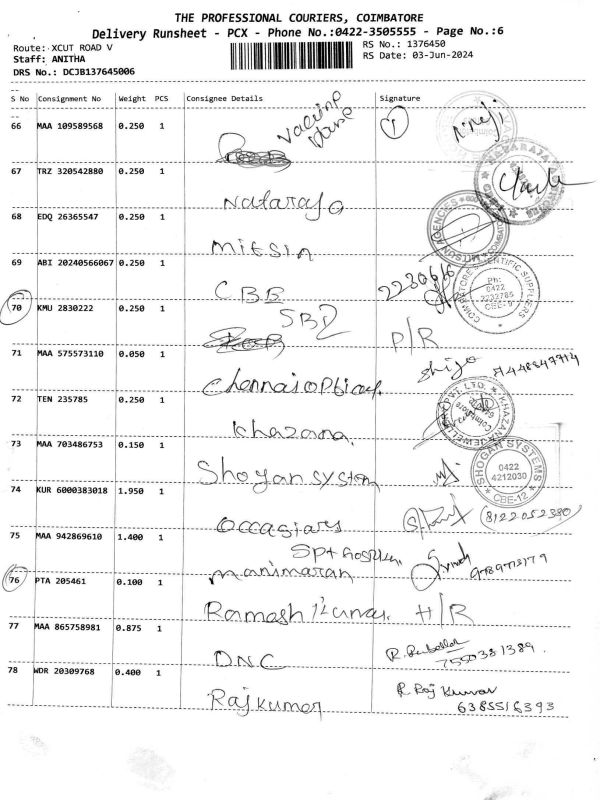 THE PROFESSIONAL COURIERS, COIMBATORE
Delivery Runsheet - PCX - Phone No.:0422-3505555 - Page No.:6
Route: XCUT ROAD V
RS No.: 1376450
Staff: ANITHA
RS Date: 03-Jun-2024
DRS No.: DCJB137645006
S No Consignment No Weight PCS Consignee Details Signature
66 MAA 109589568 0.250 1
67 TRZ 320542880 0.250 1 Nataraja
68 EDQ 26365547 0.250 1 Mitsin
69 ABI 20240566067 0.250 1 CBE
70 KMU 2830222 0.250 1 SBI P/R
71 MAA 575573110 0.050 1 Chennai optical
72 TEN 235785 0.250 1 Khazana
73 MAA 703486753 0.150 1 Shogan system
SHOGAN SYSTEMS
0422
4212030
CBE-12
74 KUR 6000383018 1.950 1 occasians (8122052380)
75 MAA 942869610 1.400 1 Manimaran
76 PTA 205461 0.100 1 Ramash Kumar. H/R
77 MAA 865758981 0.875 1 DNC 7550381389.
78 WDR 20309768 0.400 1 Rajkumar R. Raj Kumar
6385516393
Ph:
0422
2232785
CBE-9